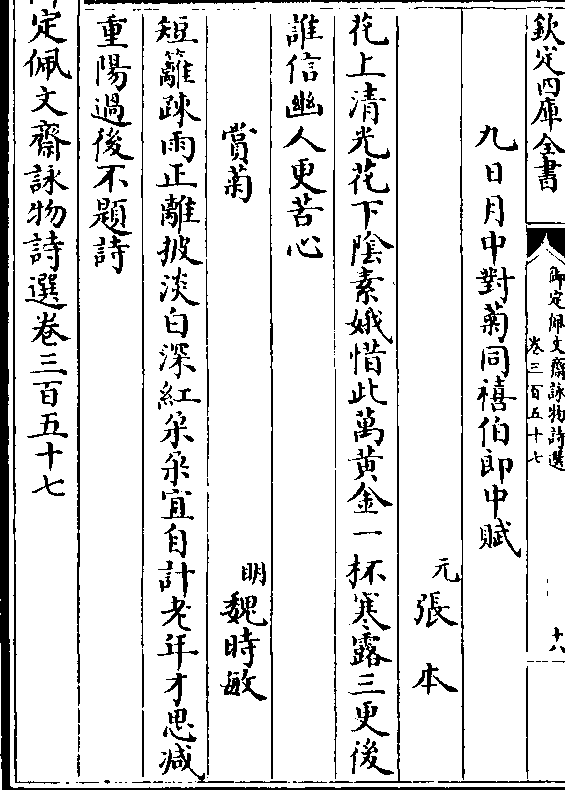 欽定四庫全書
御定佩文齋詠物詩選
卷三百五十七
十八
九日月中對菊同禧伯郎中賦
元張本
花上清光花下陰素娥惜此萬黄金一杯寒露三更後
誰信幽人更苦心
賞菊
明魏時敏
短籬疎雨正離披淡白深紅朶朶宜自計老年才思减
重陽過後不題詩
御定佩文齋詠物詩選卷三百五十七